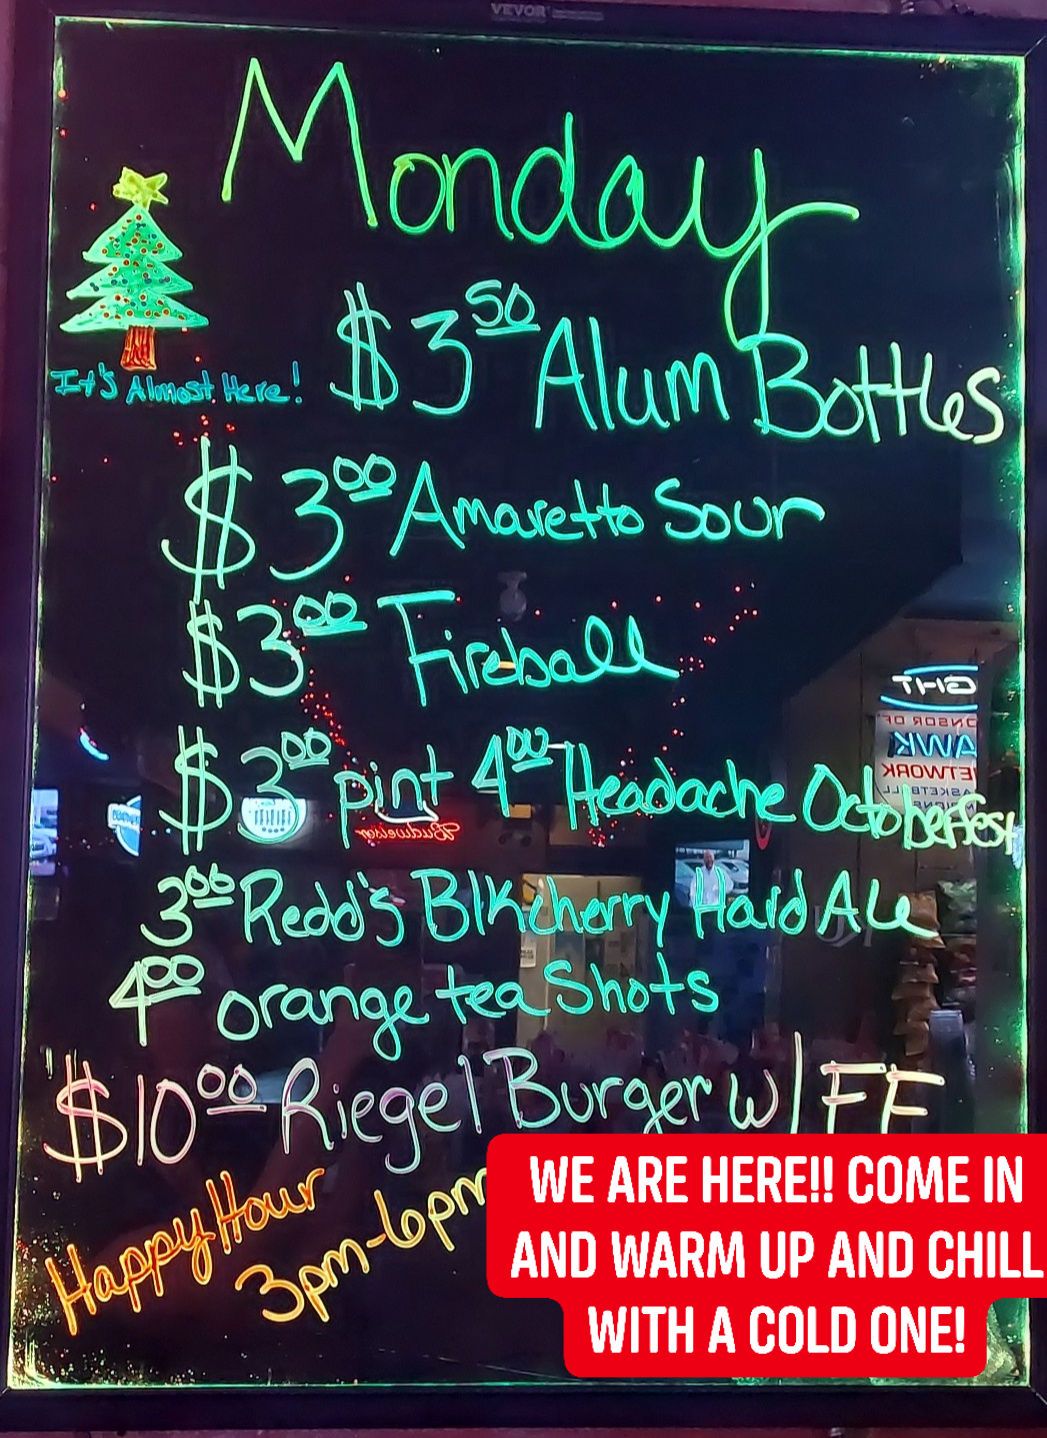 VEVOR
Monday
It's Almost Here!
$3 50 Alum Bottles
$3 00 Amaretto Sour
$3 00 Fireball
$3 00 pint 4 00 Headache Octoberfest
3 00 Redd's Blkcherry Hard Ale
4 00 orange tea Shots
$10 00 Riegel Burger w/ FF
Happy Hour
3pm-6pm
WE ARE HERE!! COME IN
AND WARM UP AND CHILL
WITH A COLD ONE!
GHT
NSOR OF
AWK
ETWORK
Budweiser